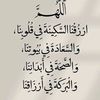 اللَّهُمَّ
ارْزُقْنَا السَّكِينَةَ فِي قُلُوبِنَا،
وَالسَّعَادَةَ فِي بُيُوتِنَا،
وَالصِّحَّةَ فِي أَبْدَانِنَا،
وَالبَرَكَةَ فِي أَرْزَاقِنَا